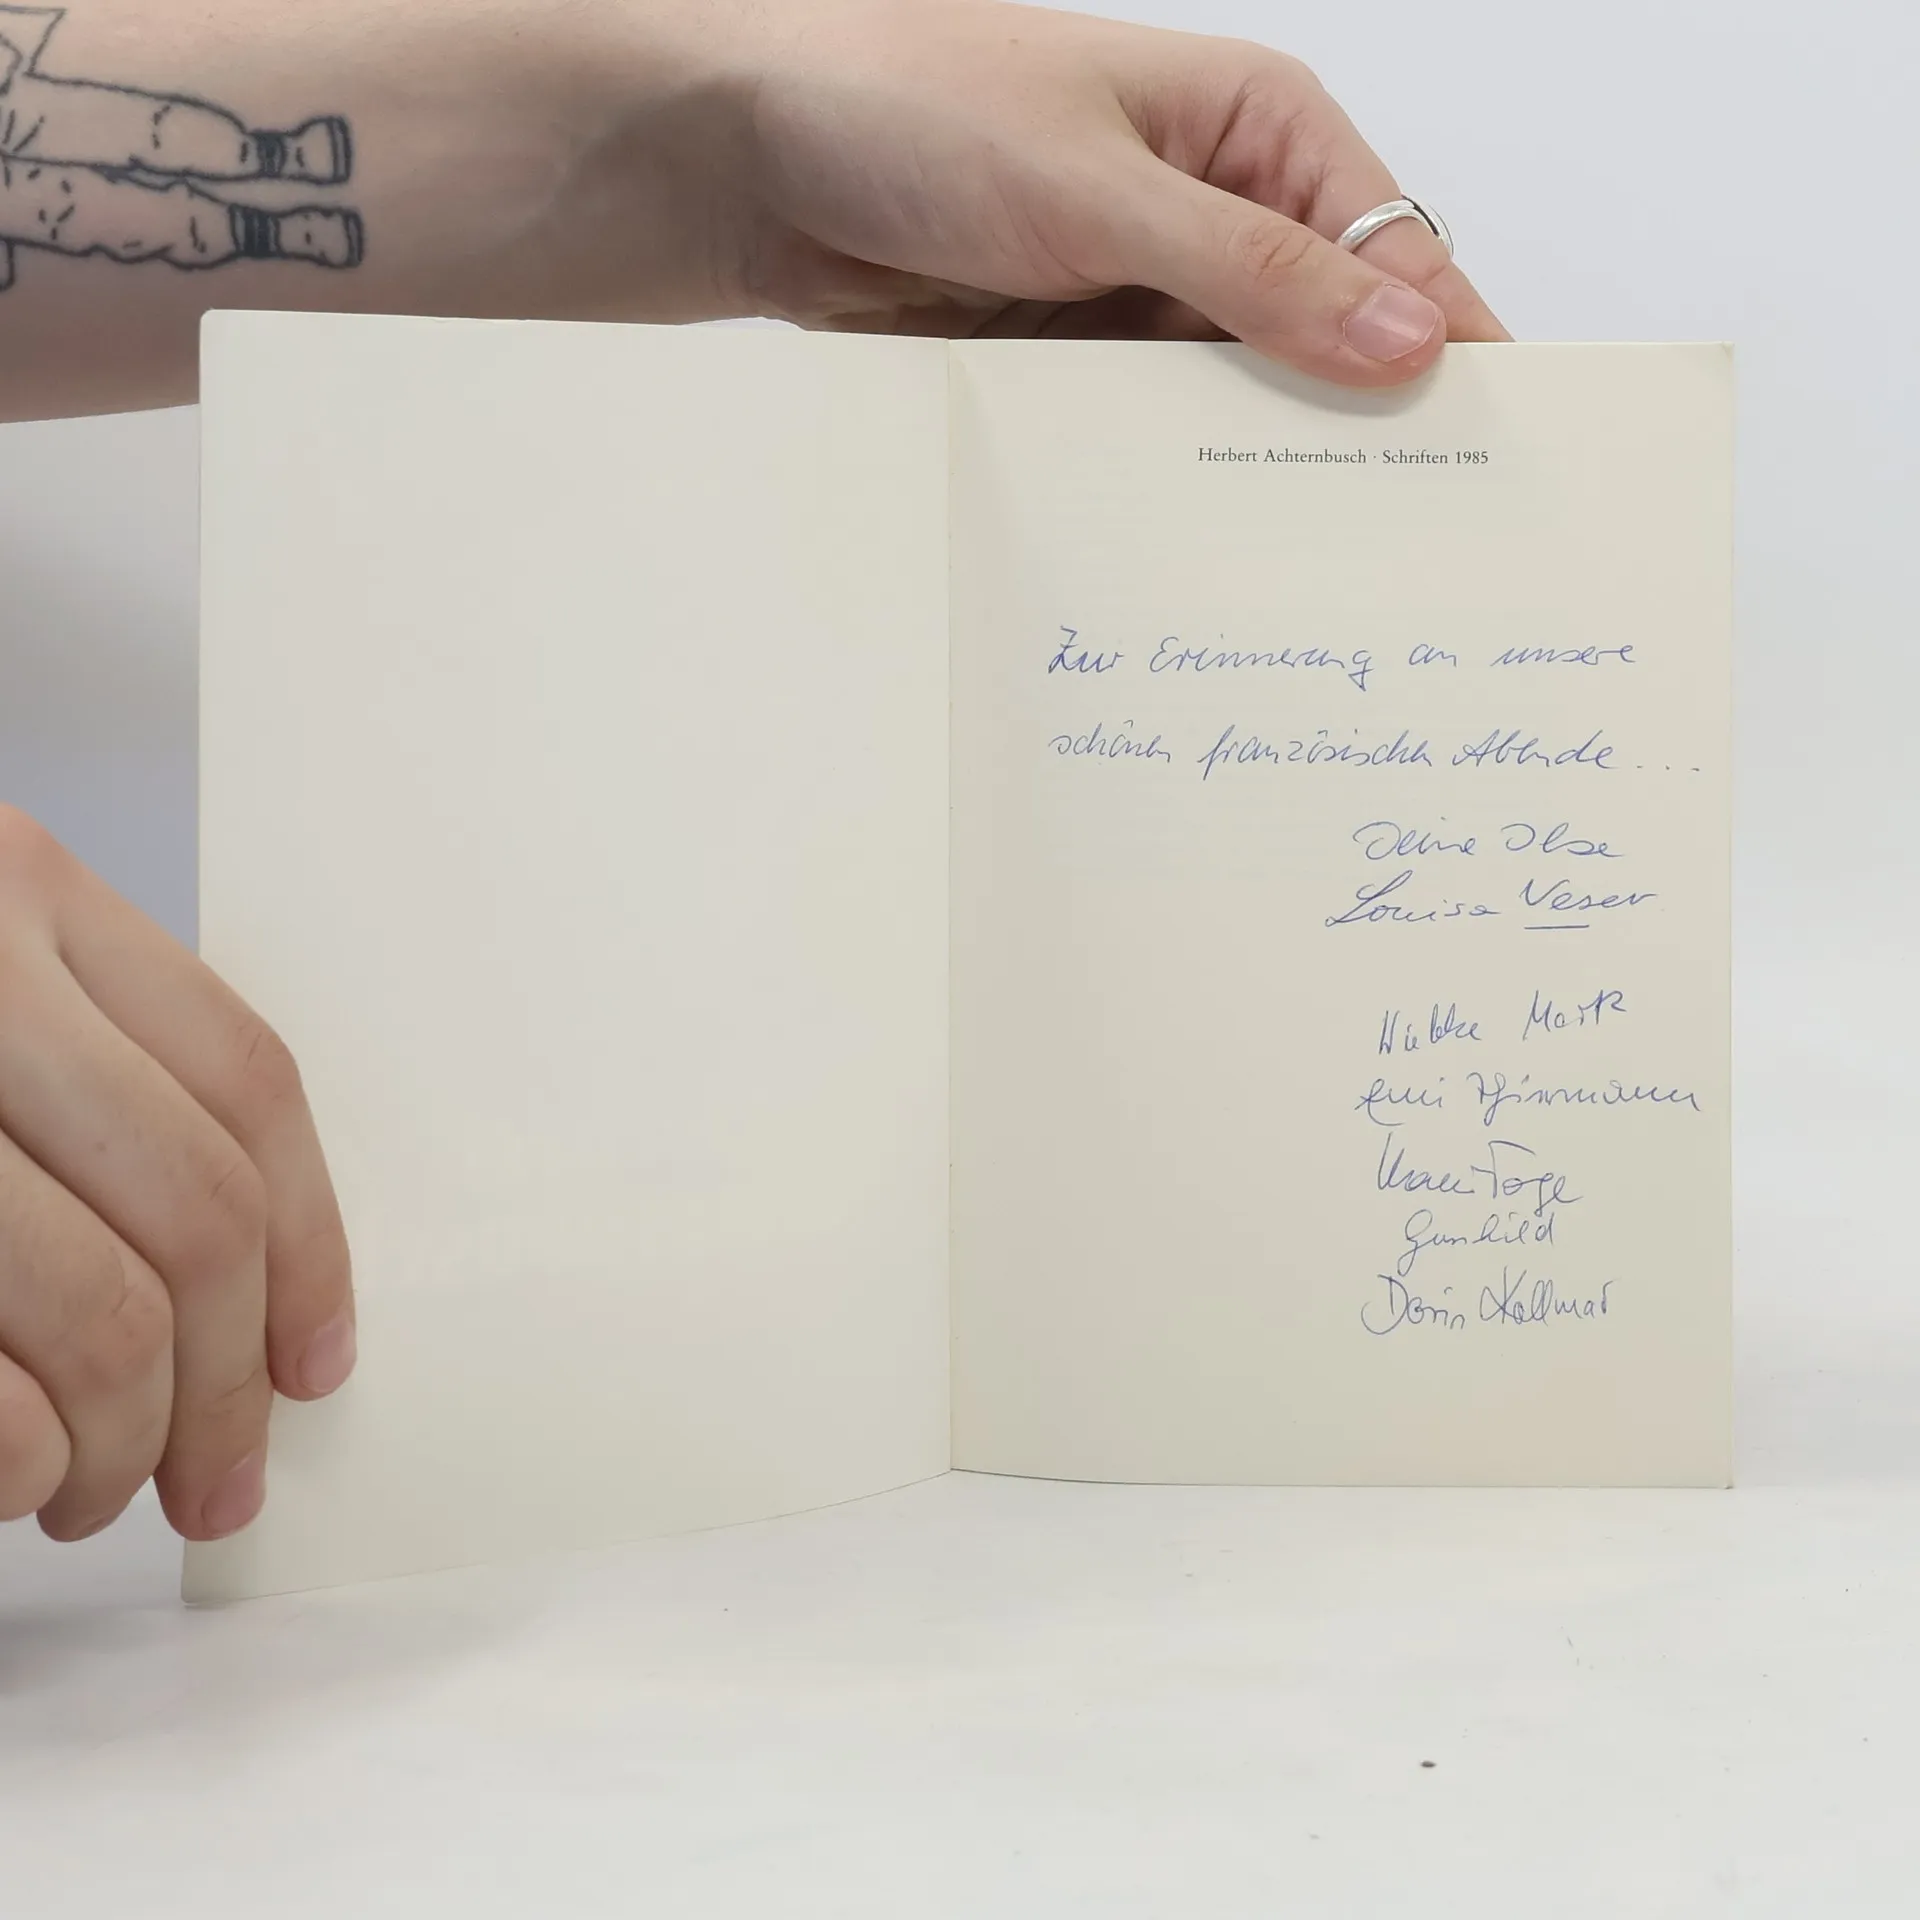 Herbert Achternbusch · Schriften 1985
Zur Erinnerung an unsere
schönen französischen Abende...
Deine Ilse
Louisa Veser
Wiebke Mark
Thürmann
Gunhild
Doris Kollmar